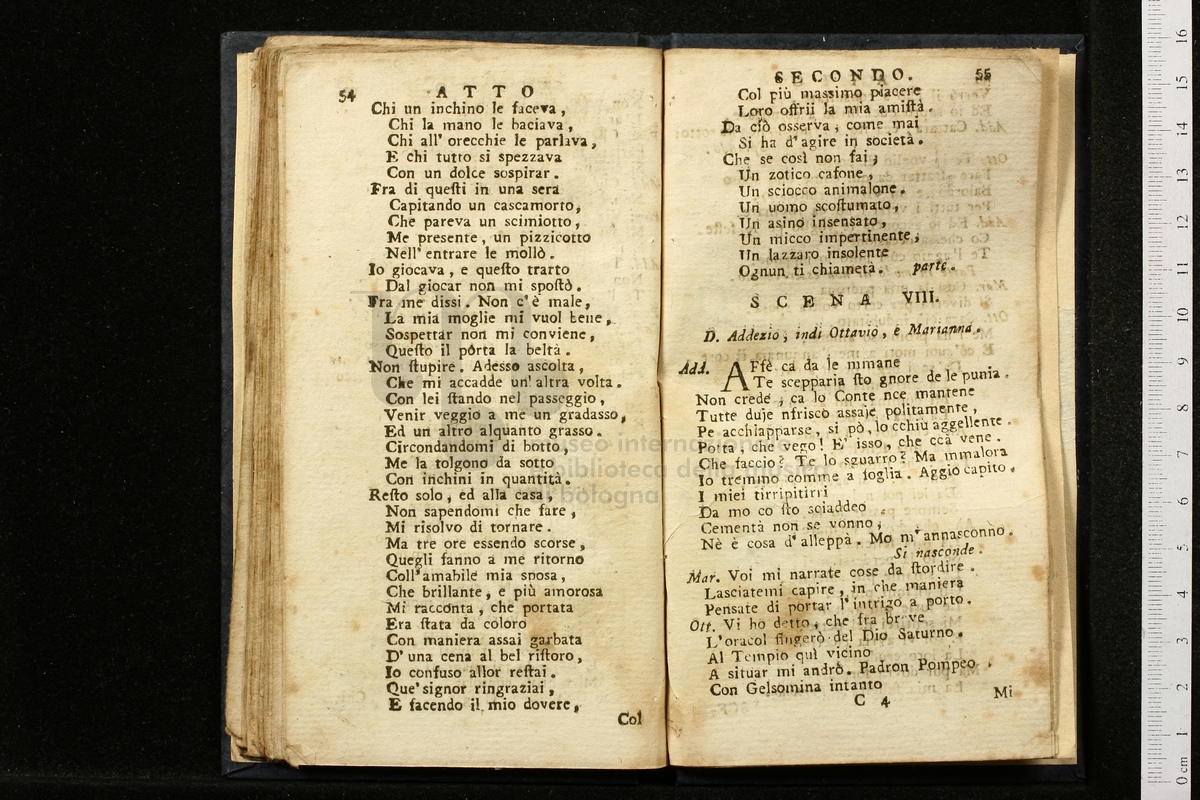 54 ATTO
Chi un inchino le faceva,
Chi la mano le baciava,
Chi all' orecchie le parlava,
E chi tutto si spezzava
Con un dolce sospirar.
Fra di questi in una sera
Capitando un cascamorto,
Che pareva un scimiotto,
Me presente, un pizzicotto
Nell' entrare le mollò.
Io giocava, e questo tratto
Dal giocar non mi spostò.
Fra me dissi. Non c'è male,
La mia moglie mi vuol bene,
Sospettar non mi conviene,
Questo il pòrta la beltà.
Non stupire. Adesso ascolta,
Che mi accadde un' altra volta.
Con lei stando nel passeggio,
Venir veggio a me un gradasso,
Ed un altro alquanto grasso.
Circondandomi di botto,
Me la tolgono da sotto
Con inchini in quantità.
Resto solo, ed alla casa,
Non sapendomi che fare,
Mi risolvo di tornare.
Ma tre ore essendo scorse,
Quegli fanno a me ritorno
Coll' amabile mia sposa,
Che brillante, e più amorosa
Mi racconta, che portata
Era stata da coloro
Con maniera assai garbata
D' una cena al bel ristoro,
Io confuso allor restai.
Que' signor ringraziai,
E facendo il mio dovere,
Col
SECONDO. 55
Col più massimo piacere
Loro offrii la mia amistà.
Da ciò osserva, come mai
Si ha d'agire in società.
Che se così non fai,
Un zotico cafone,
Un sciocco animalone.
Un uomo scostumato,
Un asino insensato,
Un micco impertinente,
Un lazzaro insolente
Ognun ti chiametà. parte.
SCENA VIII.
D. Addezio, indi Ottavio, e Marianna.
Add. AFfè ca da le mmane
Te scepparia sto gnore de le punia.
Non crede, ca lo Conte nce mantene
Tutte duje nfrisco assaje politamente,
Pe acchiapparse, si pò, lo cchiù aggellente.
Potta, che vego! E' isso, che ccà vene.
Che faccio? Te lo sguarro? Ma mmalora
Io tremmo comme a foglia. Aggio capito.
I miei tirripitirri
Da mo co sto sciaddeo
Cementà non se vonno,
Nè è cosa d'alleppà. Mo m'annasconno.
Si nasconde.
Mar. Voi mi narrate cose da stordire.
Lasciatemi capire, in che maniera
Pensate di portar l'intrigo a porto.
Ott. Vi ho detto, che fra breve
L'oracol fingerò del Dio Saturno.
Al Tempio quì vicino
A situar mi andrò. Padron Pompeo
Con Gelsomina intanto
C 4 Mi
museo internazionale
biblioteca della musica
bologna
0 cm 1 2 3 4 5 6 7 8 9 10 11 12 13 14 15 16